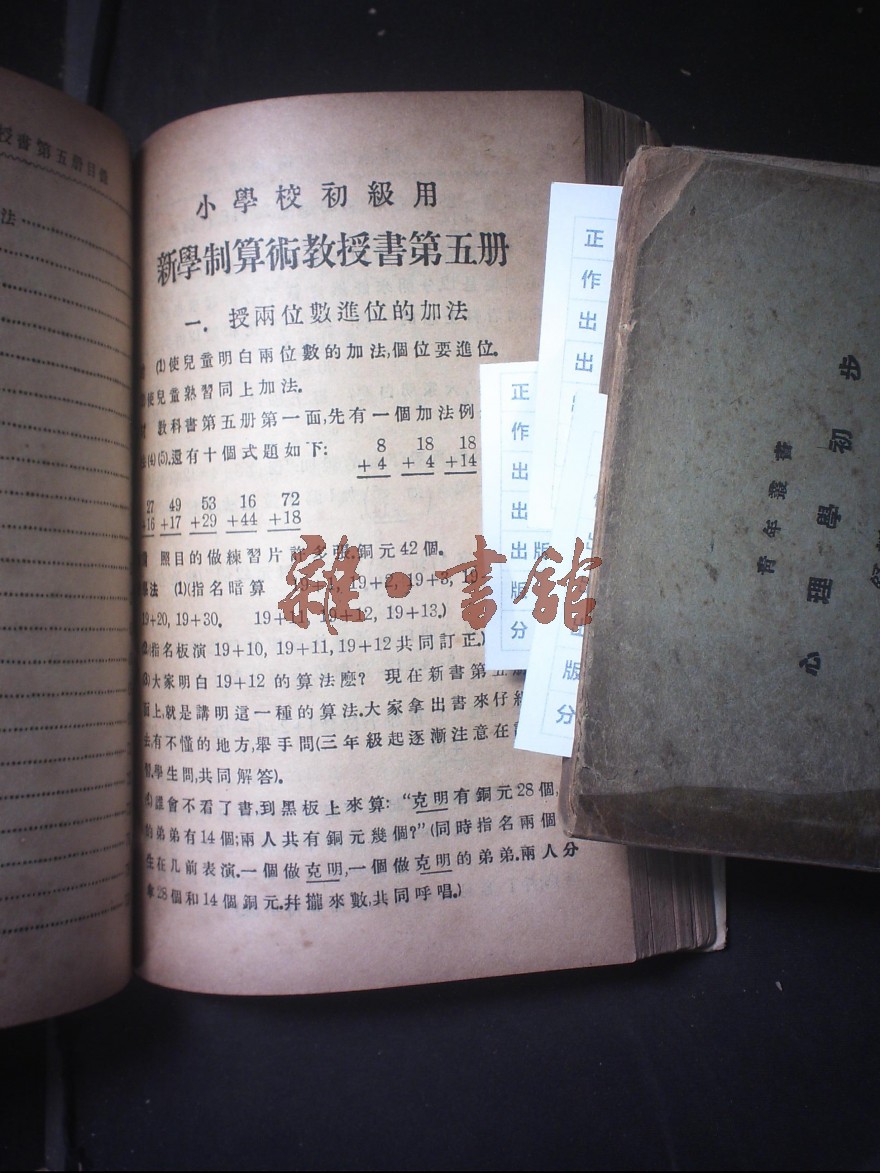 授書第五册目錄
法
小學校初級用
新學制算術教授書第五册
一．授兩位數進位的加法
(1)使兒童明白兩位數的加法,個位要進位.
使兒童熟習同上加法.
教科書第五册第一面,先有一個加法例
(4)(5),還有十個式題如下: 8 18 18
+4 +4 +14
27 49 53 16 72
+16 +17 +29 +44 +18
照目的做練習片許多張.銅元42個.
法 (1)(指名暗算 19+1, 19+2, 19+3, 19
19+20, 19+30. 19+11, 19+12, 19+13.)
指名板演 19+10, 19+11, 19+12共同訂正.)
大家明白19+12的算法麽? 現在新書第五册
面上,就是講明這一種的算法.大家拿出書來仔細
有不懂的地方,舉手問(三年級起逐漸注意在
學生問,共同解答).
誰會不看了書,到黑板上來算: “克明有銅元28個,
的弟弟有14個;兩人共有銅元幾個?”(同時指名兩個
生在几前表演.一個做克明,一個做克明的弟弟.兩人分
拿28個和14個銅元.幷攏來數,共同呼唱.)
雜·書館
正
作
出
出
正
作
出
出
出版
版
分
版
分
青年叢書
心理學初步